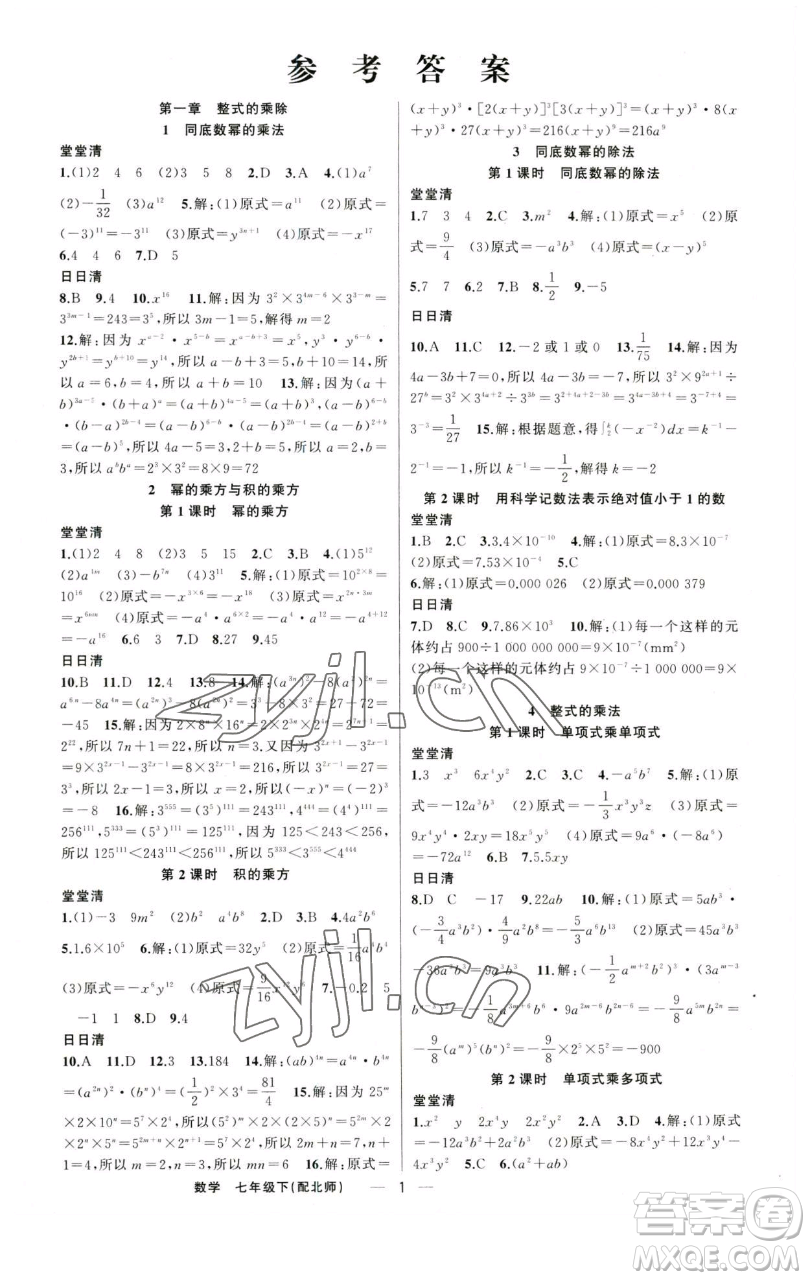 参 考 答 案
第一章 整式的乘除
1 同底数幂的乘法
堂堂清
1.(1)2 4 6 (2)3 5 8 2.D 3.A 4.(1)a⁷
(2)-1/32 (3)a¹² 5.解:(1)原式=a¹¹ (2)原式=
(-3)¹¹=-3¹¹ (3)原式=y³ⁿ⁺¹ (4)原式=-x¹⁷
6.4 4 6 7.D 5
日日清
8.B 9.4 10.x¹⁶ 11.解:因为 3²×3⁴ᵐ⁻⁶÷
3³ᵐ⁻¹=243=3⁵,所以 3m-1=5,解得 m=2
12.解:因为 x^(a-2)·x^(5-b)=x^(a-b+3)=x⁶,y^(6-b)·
y^(2b+4)=y^(b+10)=y^(14),所以 a-b+3=5,b+10=
14,所以 a+b=10 13.解:因为(a+
b)^(3a-5)·(b+a)^a=(a+b)^(4a-5),(a-b)^(6-b)
·(b-a)^(2b-4)=(a-b)^(6-b)·(a-b)^(2b-4)=(a-b)^(2+b)
=(a-b)⁵,所以 4a-5=3,b+2=5,所以 a=2,b=
3,所以 aᵇbᵃ=2³×3²=8×9=72
2 幂的乘方与积的乘方
第 1 课时 幂的乘方
堂堂清
1.(1)2 4 8 (2)3 5 15 2.C 3.B 4.(1)5¹²
(2)a^(1m) (3)-b^(7n) 5.解:(1)原式=10^(2×8)=
10¹⁶ (2)原式=-x^(3×6)=-x¹⁸ (3)原式=x^(2n·3m)
=x^(6mn) (4)原式=-a⁴·a^(3×4)=-a⁴·a¹²=-a^(4+12)
=-a¹⁶ 6.6 3 7.D 8.27 9.45
日日清
10.B 11.D 12.4 13.8 14.解:(a³ⁿ)²-8(a²)²ⁿ=
a⁶ⁿ-8a⁴ⁿ=(a²ⁿ)³-8(a²ⁿ)²=3³-8×3²=27-72=
-45 15.解:因为 2×8ⁿ×16ⁿ=2×2³ⁿ×2⁴ⁿ=2^(7n+1)=
2²²,所以 7n+1=22,所以 n=3,又因为 3^(2x-1)
=9×3^(2x-1)=3²×3^(2x-1)=3^(2x-1)=
3^(2x-1),所以 2x-1=3,所以 x=2,所以(-x)ⁿ=(-2)³
=-8 16.解:3⁵⁵⁵=(3⁵)¹¹¹=243¹¹¹,4⁴⁴⁴=(4⁴)¹¹¹=
256¹¹¹,5³³³=(5³)¹¹¹=125¹¹¹,因为 125<243<256,
所以 125¹¹¹<243¹¹¹<256¹¹¹,所以 5³³³<3⁵⁵⁵<4⁴⁴⁴
第 2 课时 积的乘方
堂堂清
1.(1)-3 9m² (2)b² a⁴b⁸ 2.B 3.A 4.4a²b⁶
5.1.6×10⁵ 6.解:(1)原式=32y⁵ (2)原式=1/16 a⁴b⁴
(3)原式=-x⁶y¹² (4)原式=9/16 x⁶y⁶ 7.-0.2 5
-1 1 8.D 9.4
日日清
10.A 11.D 12.3 13.184 14.解:(ab)⁴ⁿ=a⁴ⁿ·
b⁴ⁿ=(a²ⁿ)²·(bⁿ)⁴=(1/2)²×3⁴=81/4 15.解:因为 25ᵐ
×2×10ⁿ=5⁷×2⁴,所以(5²)ᵐ×2×(2×5)ⁿ=5²ᵐ
×2×2ⁿ×5ⁿ=5^(2m+n)×2^(n+1)=5⁷×2⁴,所以 5^(2m+n)
=5⁷,2^(n+1)=2⁴,所以 2m+n=7,n+1=4,所以 m=
2,n=3,所以 m+n=2+3=5 16.解:原式=
(x+y)³·[2(x+y)]³[3(x+y)]³=(x+y)³·8
(x+y)³·27(x+y)³=216(x+y)⁹=216a⁹
3 同底数幂的除法
第 1 课时 同底数幂的除法
堂堂清
1.7 3 4 2.C 3.m² 4.解:(1)原式=x⁵ (2)原
式=9/4 (3)原式=-a³b³ (4)原式=(x-y)⁵
5.7 7 6.2 7.B 8.1/2 9.-5
日日清
10.A 11.C 12.-2 或 1 或 0 13.1/75 14.解:因为
4a-3b+7=0,所以 4a-3b=-7,所以 3²×9^(2a+1)÷
27ᵇ=3²×3^(4a+2)÷3^(3b)=3^(2+4a+2-3b)=3^(4a-3b+4)=3^(-7+4)=
3⁻³=1/27 15.解:根据题意,得∫(-x⁻²)dx=k⁻¹-
2⁻¹=-1,所以 k⁻¹=-1/2,解得 k=-2
第 2 课时 用科学记数法表示绝对值小于 1 的数
堂堂清
1.B 2.C 3.5×10⁻¹⁰ 4.解:(1)原式=8.3×10⁻⁷
(2)原式=7.53×10⁻⁴ 5.C
6.解:(1)原式=0.000 026 (2)原式=0.000 379
日日清
7.D 8.C 9.7.86×10³ 10.解:(1)每一个这样的元
件约占 9÷1 000 000 000=9×10⁻⁷(mm²)
(2)每一个这样的元件约占 9×10⁻⁷÷1 000 000=9×
10⁻¹³(m²)
4 整式的乘法
第 1 课时 单项式乘单项式
堂堂清
1.3 x³ 6x⁴y² 2.C 3.C 4.A 5.解:(1)原式
=-12a³b³ (2)原式=-1/3 x³y³z (3)原式=
9x⁴y⁴·2xy=18x⁵y⁵ (4)原式=9a⁶·(-8a⁶)
=-72a¹² 6.B 7.5.5xy
日日清
8.D C -17 9.22ab 10.解:(1)原式=5ab³·(-
3/4 a³b)²·4/9 a²b⁸=-5/3 a⁶b⁸ (2)原式=45a³b³
-36a²b³=9a²b³ 11.解:(-1/2 a^(m+2)b)³·(3a³b²)²
=-1/8 a^(3m+6)b³·9a⁶b⁶=-9/8
9/8(aᵐ)(bⁿ)=-900
第 2 课时 单项式乘多项式
堂堂清
1.x² y 2x⁴y 2x²y² 2.A 3.A 4.解:(1)原式
=-2x²y+6xy² (2)原式=-12x³+4x² (3)原式
数学 七年级下(配北师) — 1 —
zyjl.cn
zyjl.cn
答案圈
MXQE.COM